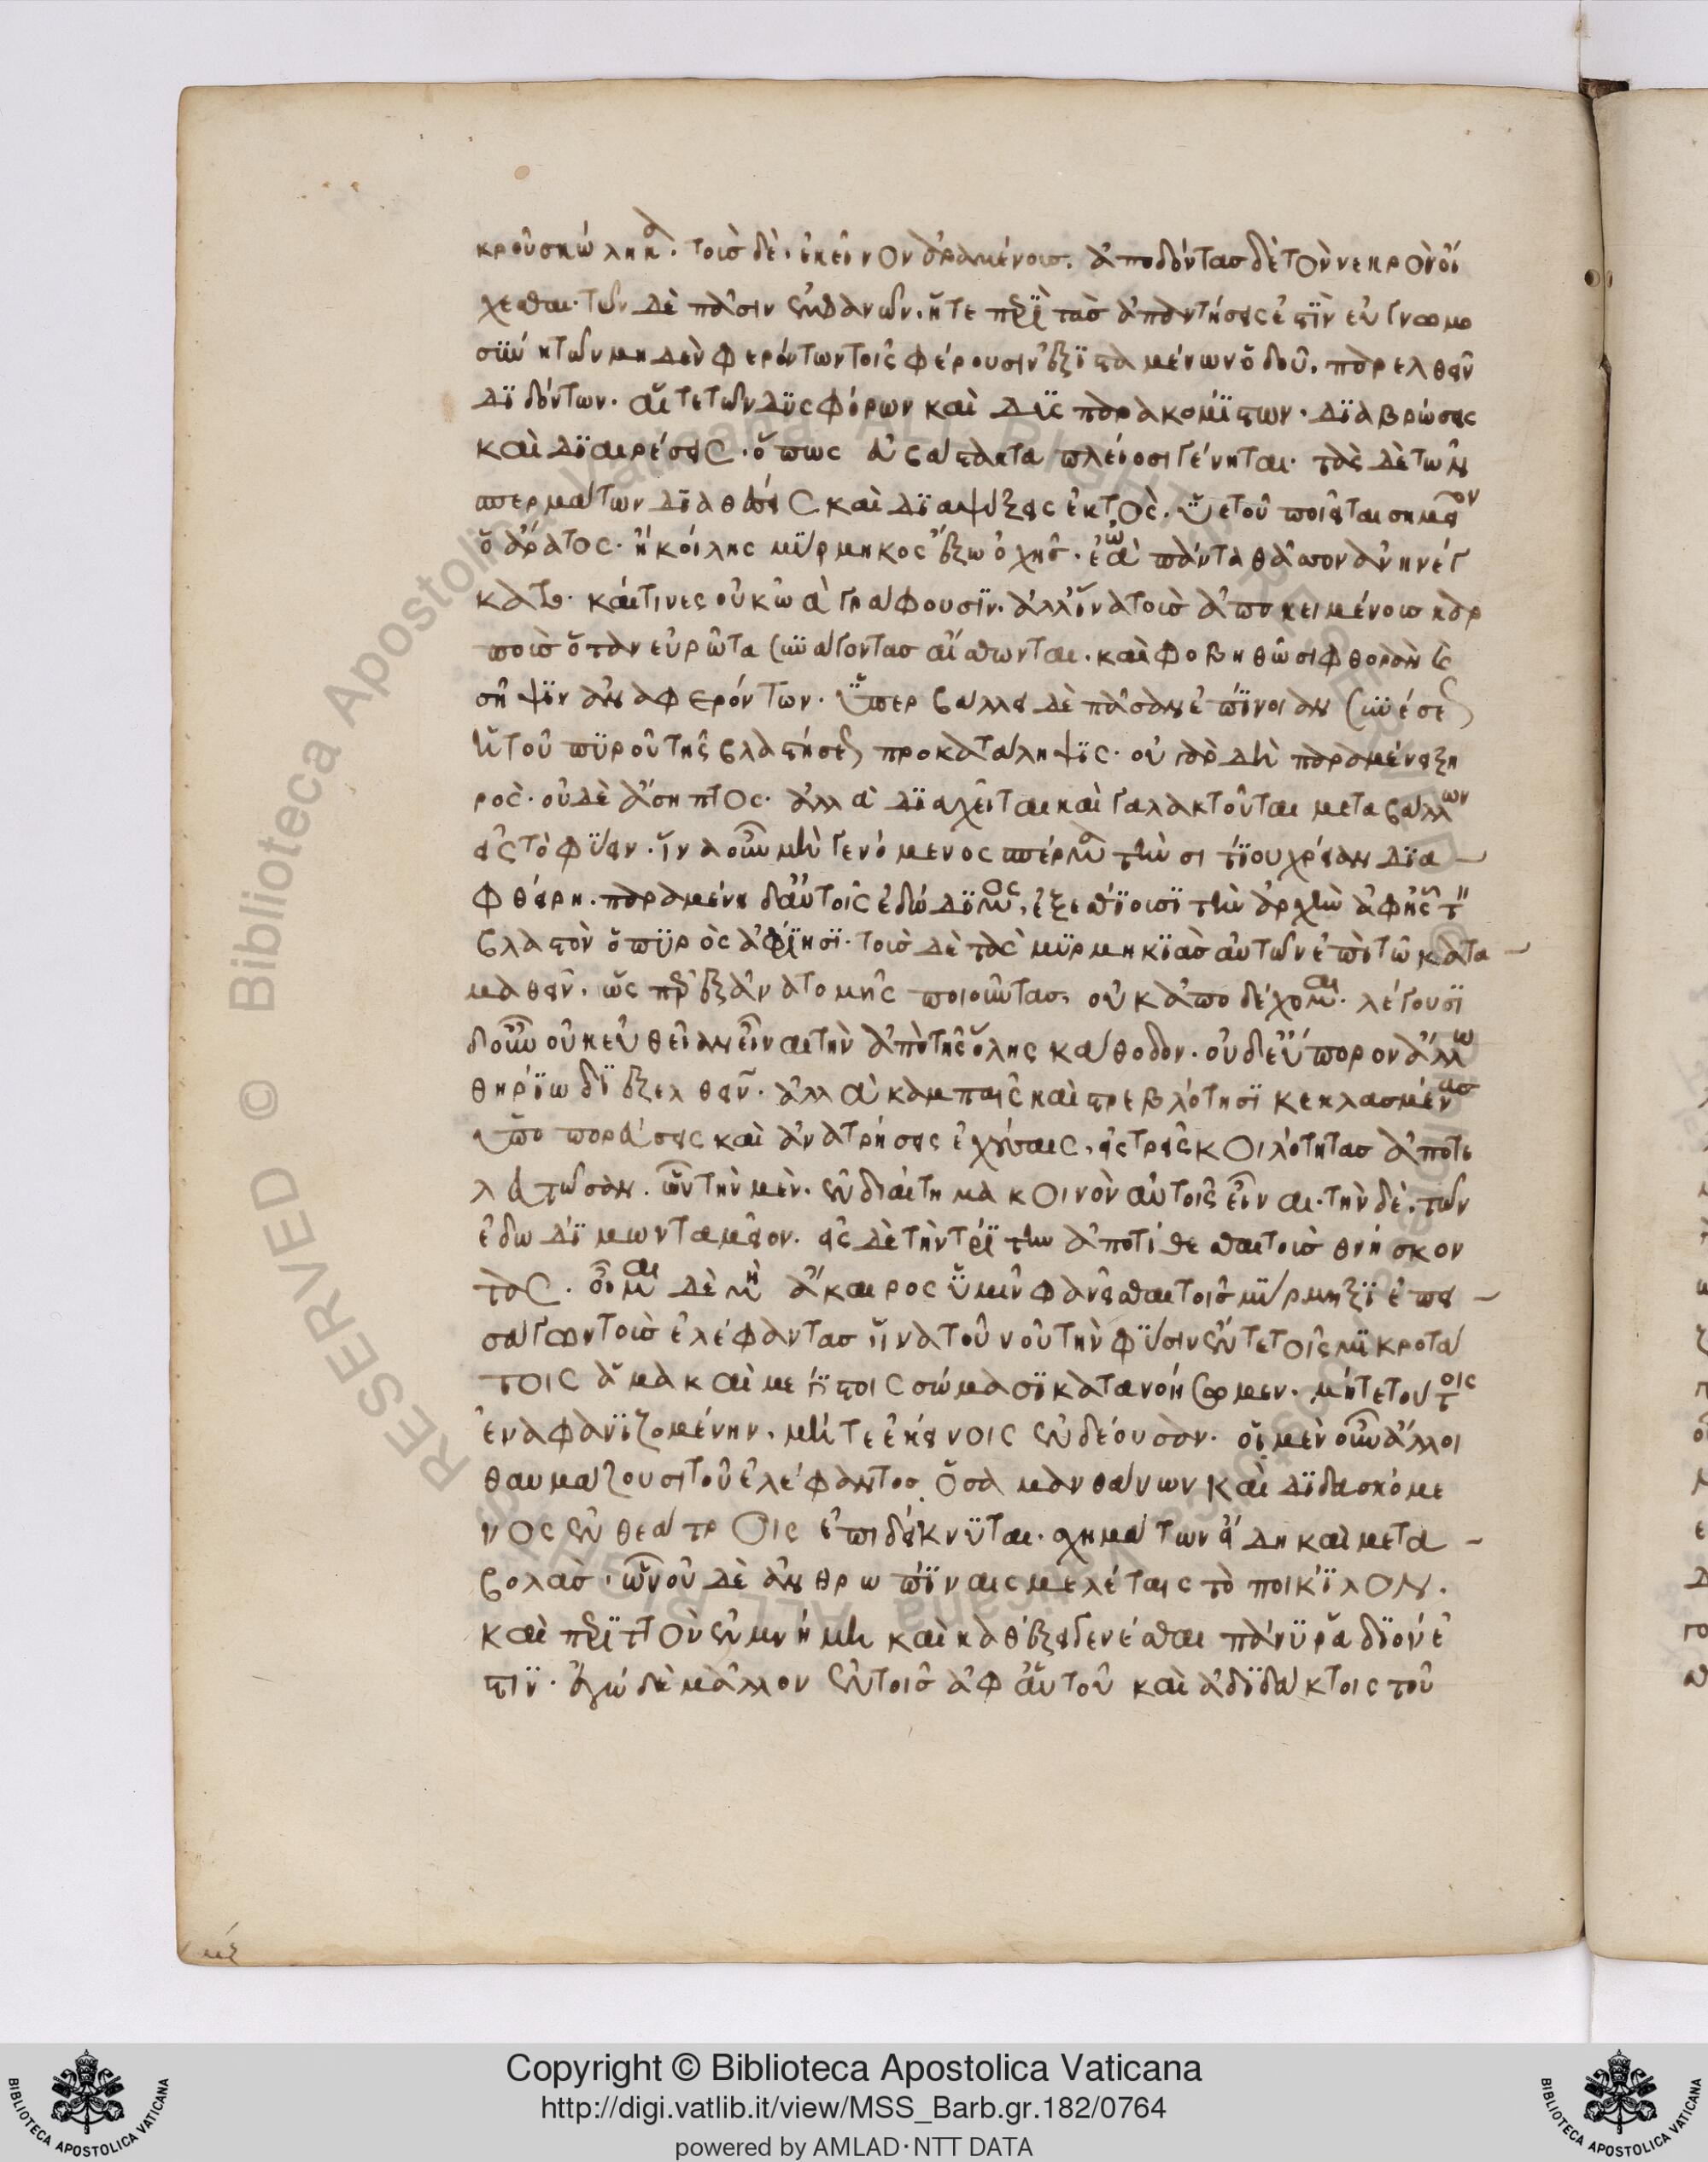 κροῦ σκώληκα. τοῖσ δὲ. ἐκεῖνον ἀραμένοισ. ἀποδόντασ δὲ τὸν νεκρὸν οἴ
χεσθαι. τῶν δὲ πᾶσιν ἐμφανῶν. ἥτε περὶ τὰσ ἀπαντήσεις ἐστὶν εὐγνωμο
σύνη τῶν μηδὲν φερόντων τοῖς φέρουσιν ἐξισταμένων ὁδοῦ. παρελθεῖν
διδόντων. αἵτε τῶν δυσφόρων καὶ δυσπαρακομίστων. διαβρώσεις
καὶ διαιρέσεις. ὅπως εὐβάστακτα πλείοσι γένηται. τὰς δὲ τῶν σ
περμάτων διαθέσεις καὶ διαψύξεις ἐκτὸς. ὑετοῦ ποιεῖται σημεῖον
ὁ ἄρατος. ἢ κοίλης μύρμηκος ἔξω ὀχῆς. ἐὰ πάντα θᾶσσον ἀνηνέγ
κατο. καί τινες οὐκ ὠὰ γράφουσιν. ἀλλ' ἵνα τοῖσ ἀποκειμένοισ καρ
ποῖσ ὅταν εὐρῶτα συνάγοντασ αἴσθωνται. καὶ φοβηθῶσι φθορὰν καὶ
σῆψιν ἀναφερόντων. ὑπερβάλλει δὲ πᾶσαν ἐπίνοιαν συνέσεως
ἡ τοῦ πυροῦ τῆς βλαστήσεως προκατάληψις. οὐ γὰρ δὴ παραμένει ξη
ρὸς. οὐδὲ ἄσηπτος. ἀλλὰ διαχεῖται καὶ γαλακτοῦται μεταβάλλων
εἰς τὸ φύειν. ἵνα οὖν μὴ γενόμενος σπέρμα τὴν σιτίου χρείαν δια
φθάρη. παραμένη δ' αὐτοῖς ἐδώδιμος, ἐξεσθίουσι τὴν ἀρχὴν ἀφ' ἧς τ
βλαστὸν ὁ πυρὸς ἀφίησι. τοῖσ δὲ τὰς μυρμηκιὰσ αὐτῶν ἐπὶ τῶ κατα
μαθεῖν. ὥς περ ἐξ ἀνατομῆς ποιοῦντασ, οὐκ ἀποδέχομαι. λέγουσι
δ' οὖν οὐκ εὐθεῖαν εἶναι τὴν ἀπὸ τῆς ὀλης κάθοδον. οὐδ' εὔπορον ἄλλω
θηρίω διεξελθεῖν. ἀλλὰ καμπαῖς καὶ στρεβλότησι κεκλασμένασ
ὑποπορεύσεις καὶ ἀνατρήσεις ἐχούσαις, εἰς τρεῖς κοιλότητασ ἀποτε
λευτῶσαν. ὧν τὴν μὲν. ἐνδιαίτημα κοινὸν αὐτοῖς εἶναι. τὴν δὲ. τῶν
ἐδωδίμων ταμεῖον. εἰς δὲ τὴν τρίτην ἀποτίθεσθαι τοὺσ θνήσκον
τας. οἶμαι δὲ μὴ ἄκαιρος ὑμῖν φανεῖσθαι τοῖς μύρμηξι ἐπει
σαγων τοὺσ ἐλέφαντασ ἵνα τοῦ νοῦ τὴν φύσιν ἔν τε τοῖς μικροτά
τοις ἅμα καὶ μεγίστοις σώμασι κατανοήσωμεν. μήτε τούτοις
ἐναφανιζομένην. μήτε ἐκείνοις ἐνδέουσαν. οἱ μὲν οὖν ἄλλοι
θαυμάζουσι τοῦ ἐλέφαντοσ ὅσα μανθάνων καὶ διδασκόμε
νος ἐν θεάτροις ἐπιδείκνυται. σχημάτων εἴδη καὶ μετα
βολὰσ. ὧν οὐδὲ ἀνθρωπίναις μελέταις τὸ ποικίλον.
καὶ περιττὸν ἐν μνήμη καὶ καθέξει γενέσθαι πάνυ ῥάδιόν ἐ
στιν. ἐγὼ δὲ μᾶλλον ἐν τοῖς ἀφ' αὑτοῦ καὶ ἀδιδάκτοις τοῦ
Copyright © Biblioteca Apostolica Vaticana
http://digi.vatlib.it/view/MSS_Barb.gr.182/0764
powered by AMLAD·NTT DATA